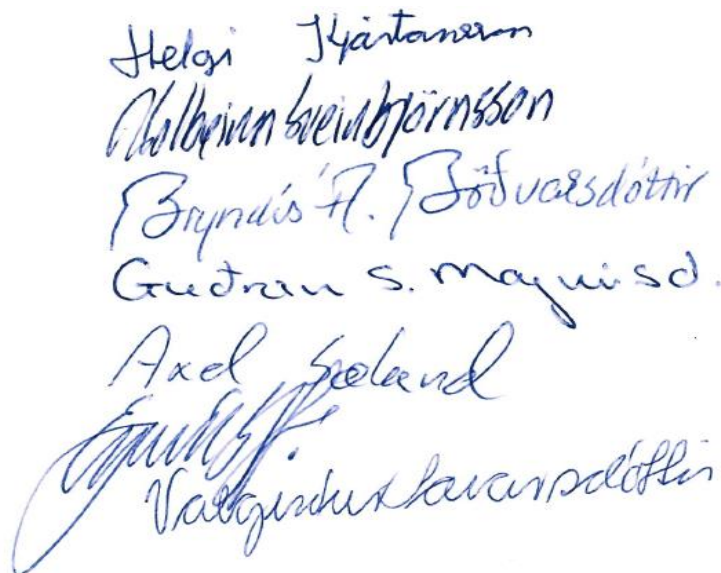 Helgi Kjartansson
Kolbeinn Sveinbjörnsson
Bryndís Á. Böðvarsdóttir
Guðrún S. Magnúsd.
Axel Sæland
Valgerður Sævarsdóttir